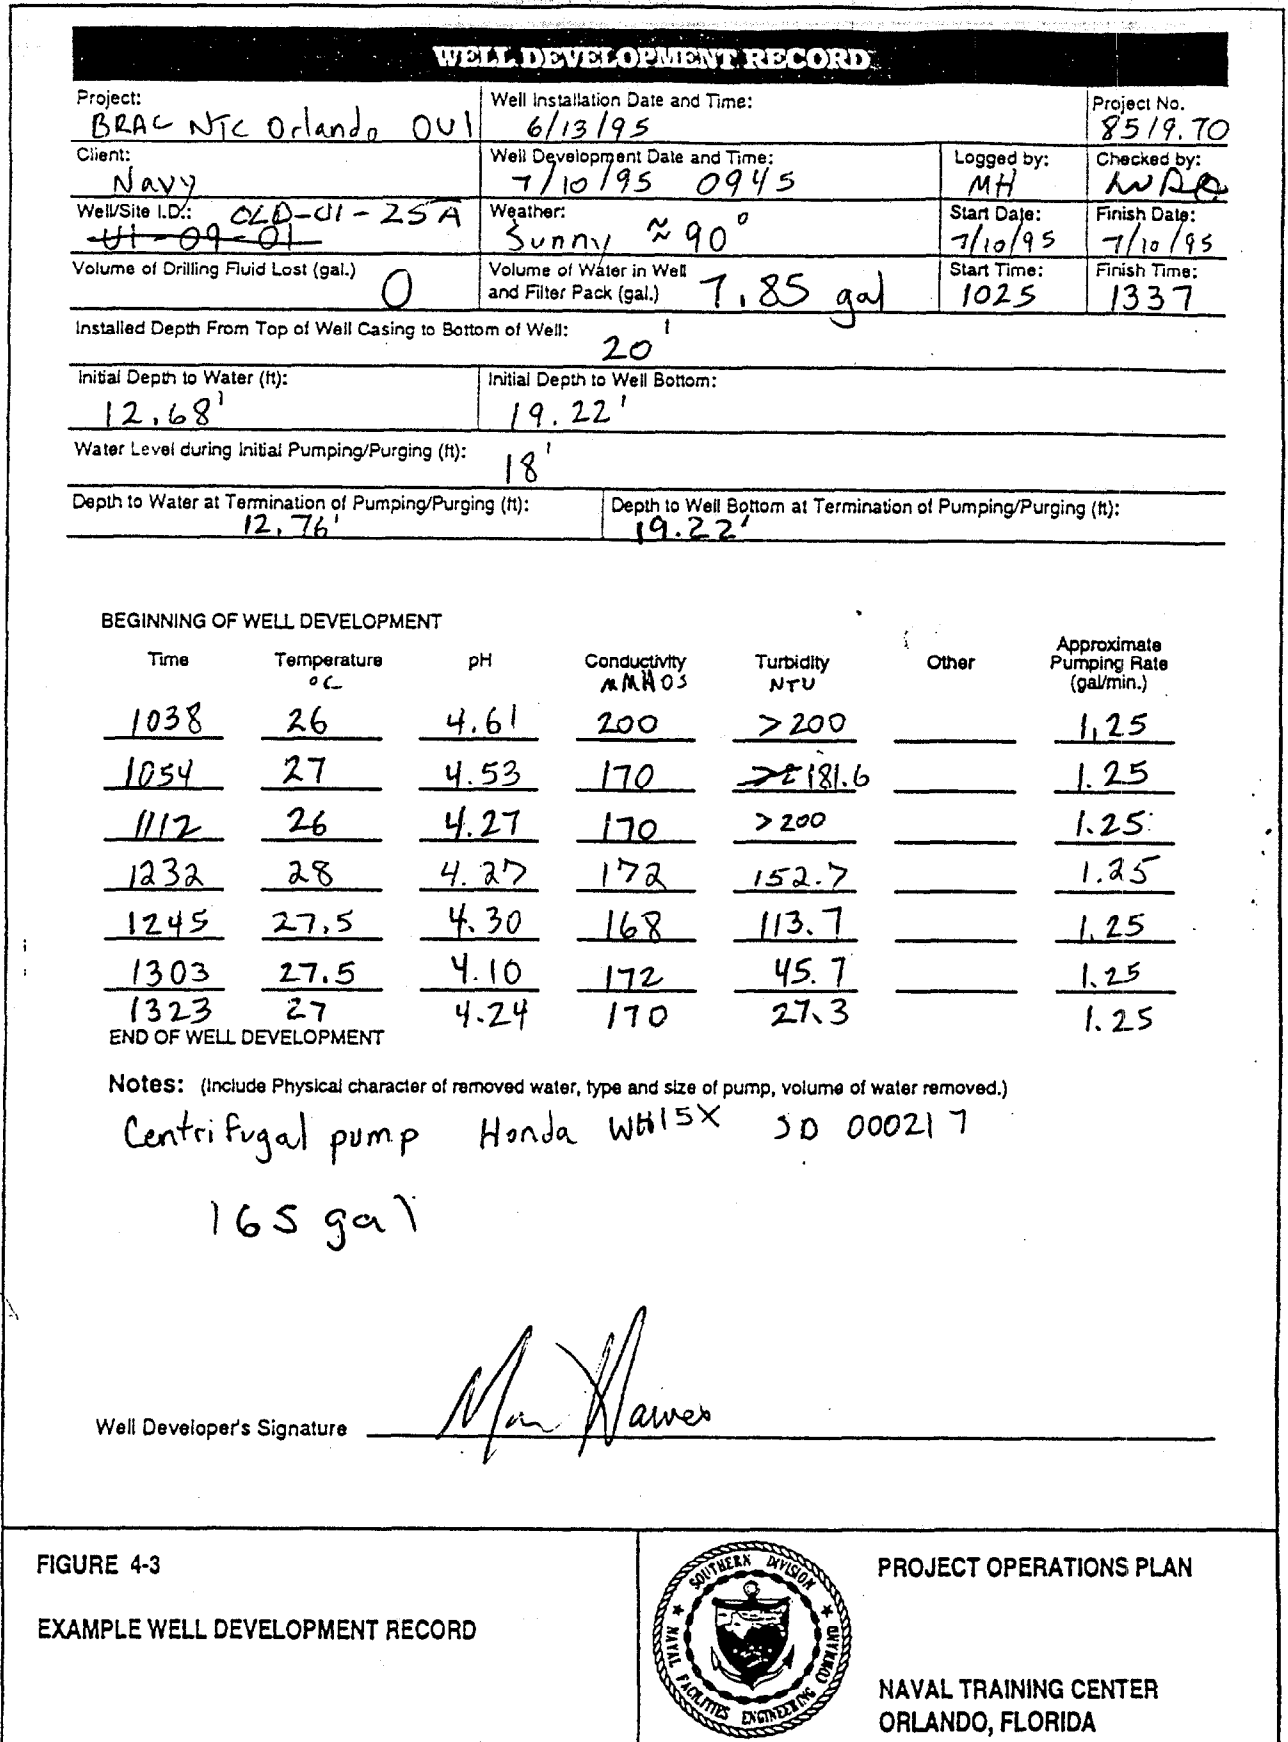 WELL DEVELOPMENT RECORD
Project: Well Installation Date and Time: Project No.
BRAC NTC Orlando OU1 6/13/95 8519.70
Client: Well Development Date and Time: Logged by: Checked by:
Navy 7/10/95 0945 MH
Well/Site I.D.: OLD-U1-25A Weather: Start Date: Finish Date:
U1-09-01 Sunny ≈ 90° 7/10/95 7/10/95
Volume of Drilling Fluid Lost (gal.) 0 Volume of Water in Well Start Time: Finish Time:
and Filter Pack (gal.) 7.85 gal 1025 1337
Installed Depth From Top of Well Casing to Bottom of Well:
20'
Initial Depth to Water (ft): Initial Depth to Well Bottom:
12.68' 19.22'
Water Level during Initial Pumping/Purging (ft):
18'
Depth to Water at Termination of Pumping/Purging (ft): Depth to Well Bottom at Termination of Pumping/Purging (ft):
12.76' 19.22'
BEGINNING OF WELL DEVELOPMENT
Time Temperature pH Conductivity Turbidity Other Approximate Pumping Rate (gal/min.)
°C MMHOS NTU
1038 26 4.61 200 >200 1.25
1054 27 4.53 170 181.6 1.25
1112 26 4.27 170 >200 1.25
1232 28 4.27 172 152.7 1.25
1245 27.5 4.30 168 113.7 1.25
1303 27.5 4.10 172 45.7 1.25
1323 27 4.24 170 27.3 1.25
END OF WELL DEVELOPMENT
Notes: (Include Physical character of removed water, type and size of pump, volume of water removed.)
Centrifugal pump Honda WH15X JD 000217
165 gal
Well Developer's Signature
FIGURE 4-3
EXAMPLE WELL DEVELOPMENT RECORD
SOUTHERN DIVISION
NAVAL FACILITIES ENGINEERING COMMAND
PROJECT OPERATIONS PLAN
NAVAL TRAINING CENTER
ORLANDO, FLORIDA